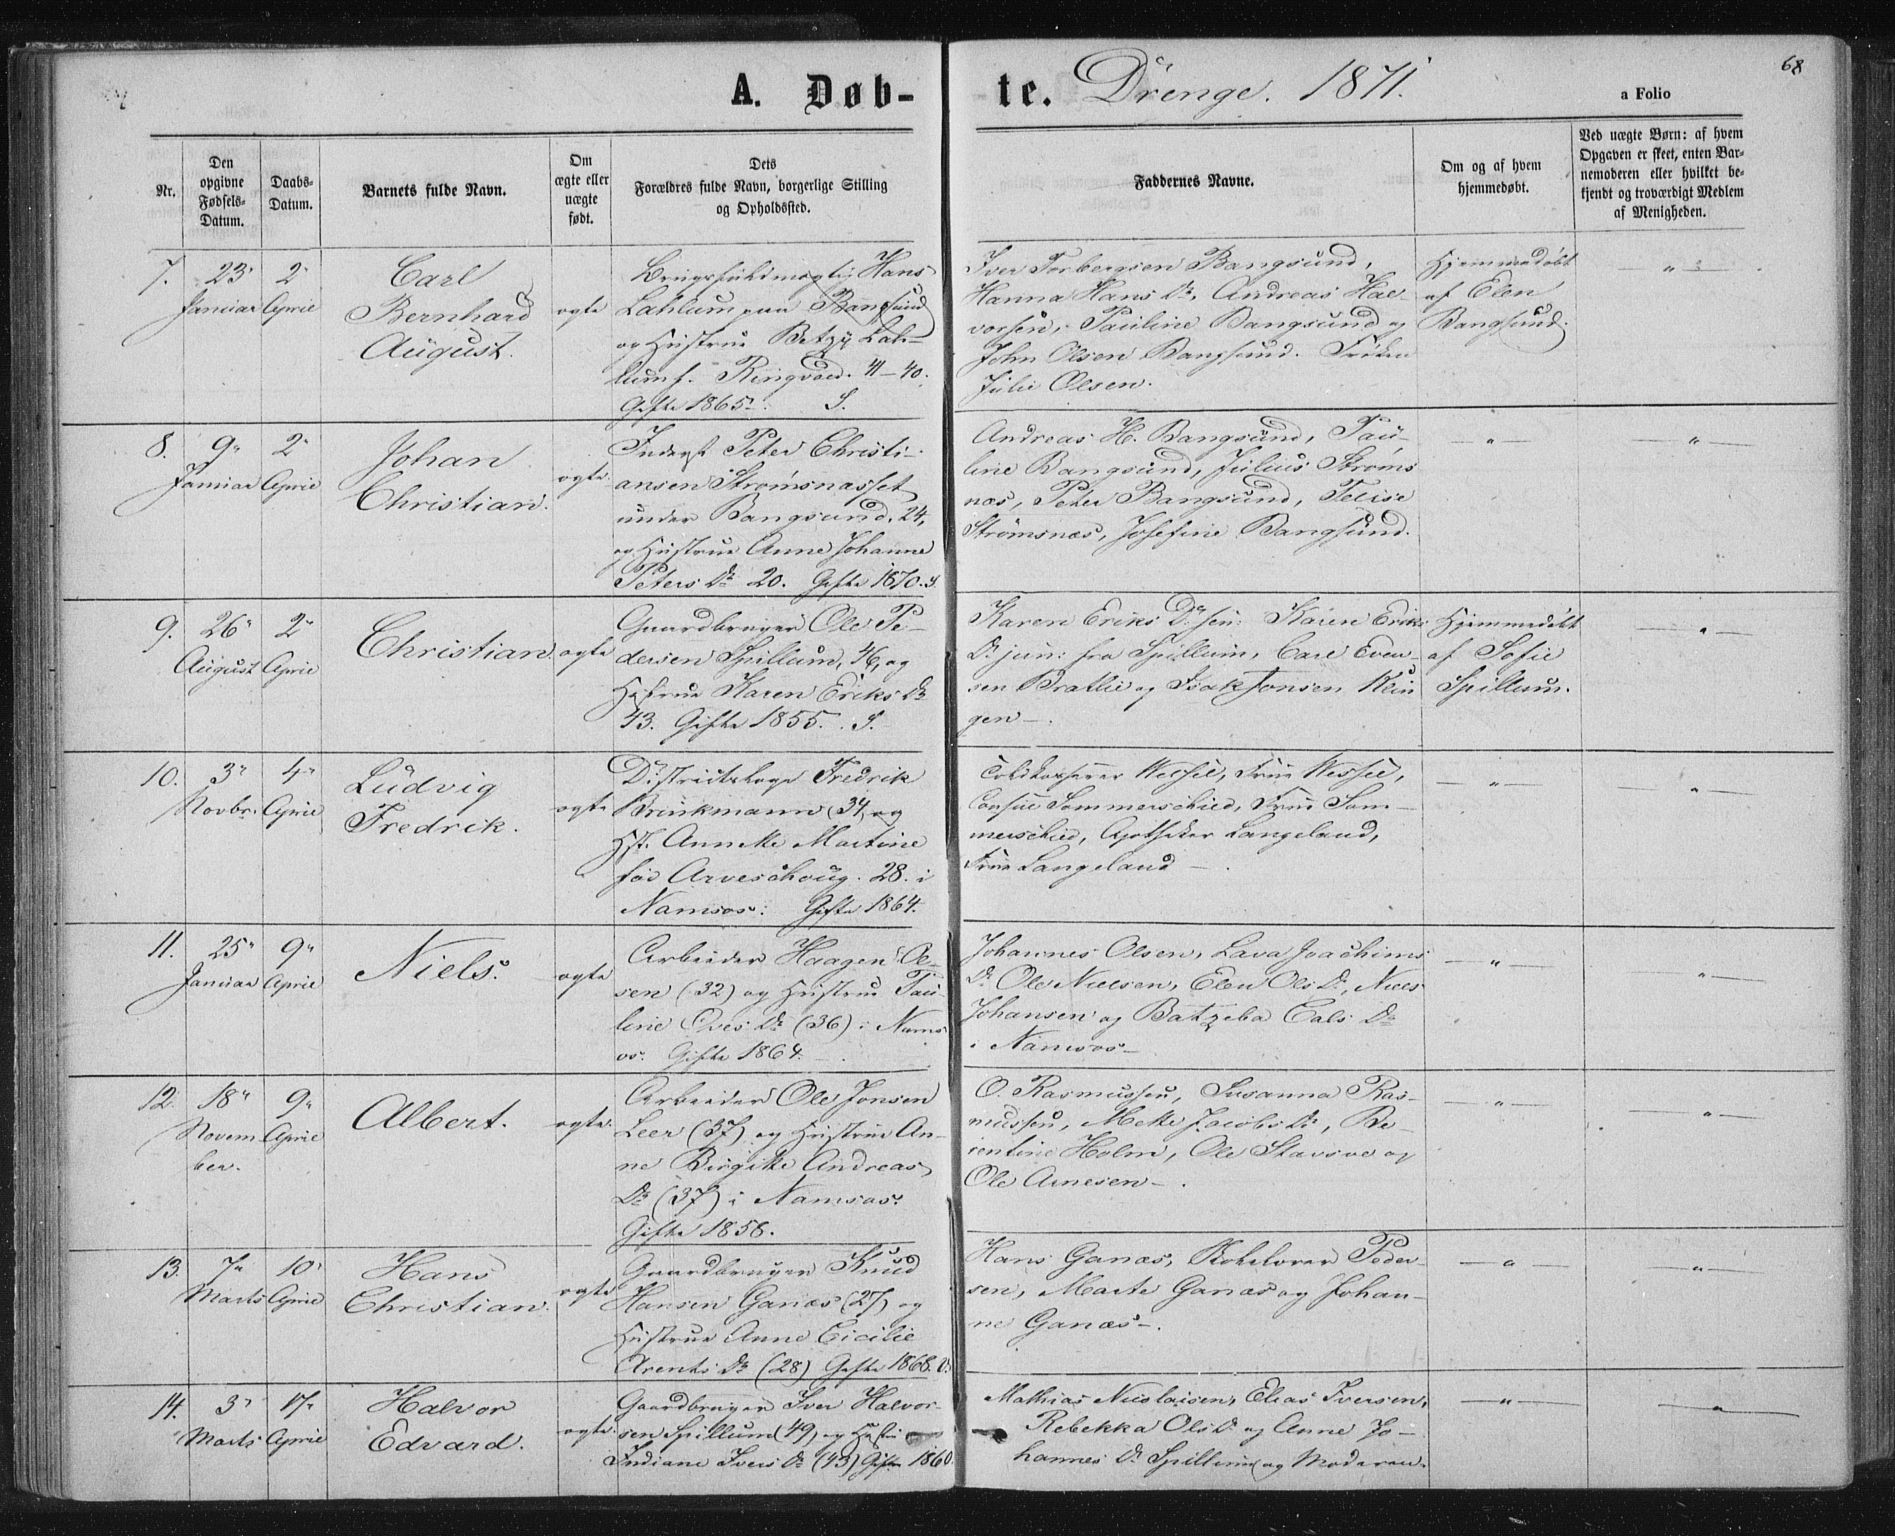 A. Døb-
te. Drenge. 1871.
a Folio
68
Nr.
Den opgivne Fødsels-Datum.
Daabs-Datum.
Barnets fulde Navn.
Om ægte eller uægte født.
Dets Forældres fulde Navn, borgerlige Stilling og Opholdssted.
Faddernes Navne.
Om og af hvem hjemmedøbt.
Ved uægte Børn: af hvem Opgaven er skeet, enten Barnemoderen eller hvilket bekjendt og troværdigt Medlem af Menigheden.
7.
23
Januar
2
April
Carl
Bernhard
August.
ægte
Brugsfuldmægtig Hans
Lahlum paa Bangsund
og Hustrue Betzy Lah-
lum f. Ringvold. 41-40.
Gifte 1865. S.
Iver Torbergsen Bangsund,
Hanna Hans Dr, Andreas Hal-
vorsen, Pauline Bangsund og
John Olsen Bangsund. Frøken
Julie Olsen.
Hjemmedøbt
af Elen
Bangsund.
8.
9
Januar
2
April
Johan
Christian.
ægte
Inderst Peter Christi-
ansen Strømsnæsset
under Bangsund, 24,
og Hustrue Anne Johanne
Peters Dr 20. Gifte 1870. S.
Andreas H. Bangsund, Pau-
line Bangsund, Julius Strøms
næs, Peter Bangsund, Felise
Strømsnæs, Josefine Bangsund.
9.
26
August
2
April
Christian.
ægte
Gaardbruger Ole Pe-
dersen Spillum, 46, og
Hustrue Karen Eriks Dr
43. Gifte 1855. S.
Karen Eriks Dr sen: Karen Eriks
Dr jun: fra Spillum, Carl Even-
sen Bratlie og Isak Jonsen Klin
gen
Hjemmedøbt
af Sofie
Spillum.
10.
3
Novbr.
4
April
Ludvig
Fredrik.
ægte
Districtslæge Fredrik
Brinkmann (34, og
Hst. Annette Martine
fød Arveschoug. 28. i
Namsos. Gifte 1864.
Toldkasserer Wessel, Frue Wessel,
Consul Sommerschield, Frue Som-
merschield, Apotheker Langeland,
Frue Langeland
11.
25
Januar
9
April
Niels.
ægte
Arbeider Haagen Ol-
sen (32) og Hustrue Pau-
line Oves Dr (36) i Nams
os. Gifte 1864.
Johannes Olsen, Lava Joachims
Dr Ole Nielsen, Elen Ols Dr, Niels
Johansen og Batzeba Cals Dr
i Namsos
12.
18
Novem
ber.
9
April
Albert.
ægte
Arbeider Ole Jonsen
Leer (37) og Hustrue An-
ne Birgitte Andreas
Dr (37) i Namsos.
Gifte 1858.
O. Rasmussen, Susanna Ras-
mussen, Mette Jacobs Dr, Be-
rentine Holm, Ole Stavsve og
Ole Arnesen
13.
7
Marts
10
April
Hans
Christian.
ægte
Gaardbruger Knud
Hansen Ganæs (27) og
Hustrue Anne Cicilie
Arents Dr (28) Gifte 1868. V.
Hans Ganæs, Peder-
sen, Marte Ganæs og Johan-
ne Ganæs
14.
3
Marts
17
April
Halvor
Edvard.
ægte
Gaardbruger Iver Halvor-
sen Spillum (49) og Hustr
Indiane Ivers Dr (43) Gifte 1860.
Mathias Nicolaisen, Elias Iversen,
Rebekka Ols Dr og Anne Jo-
hannes Dr Spillum og Moderen.